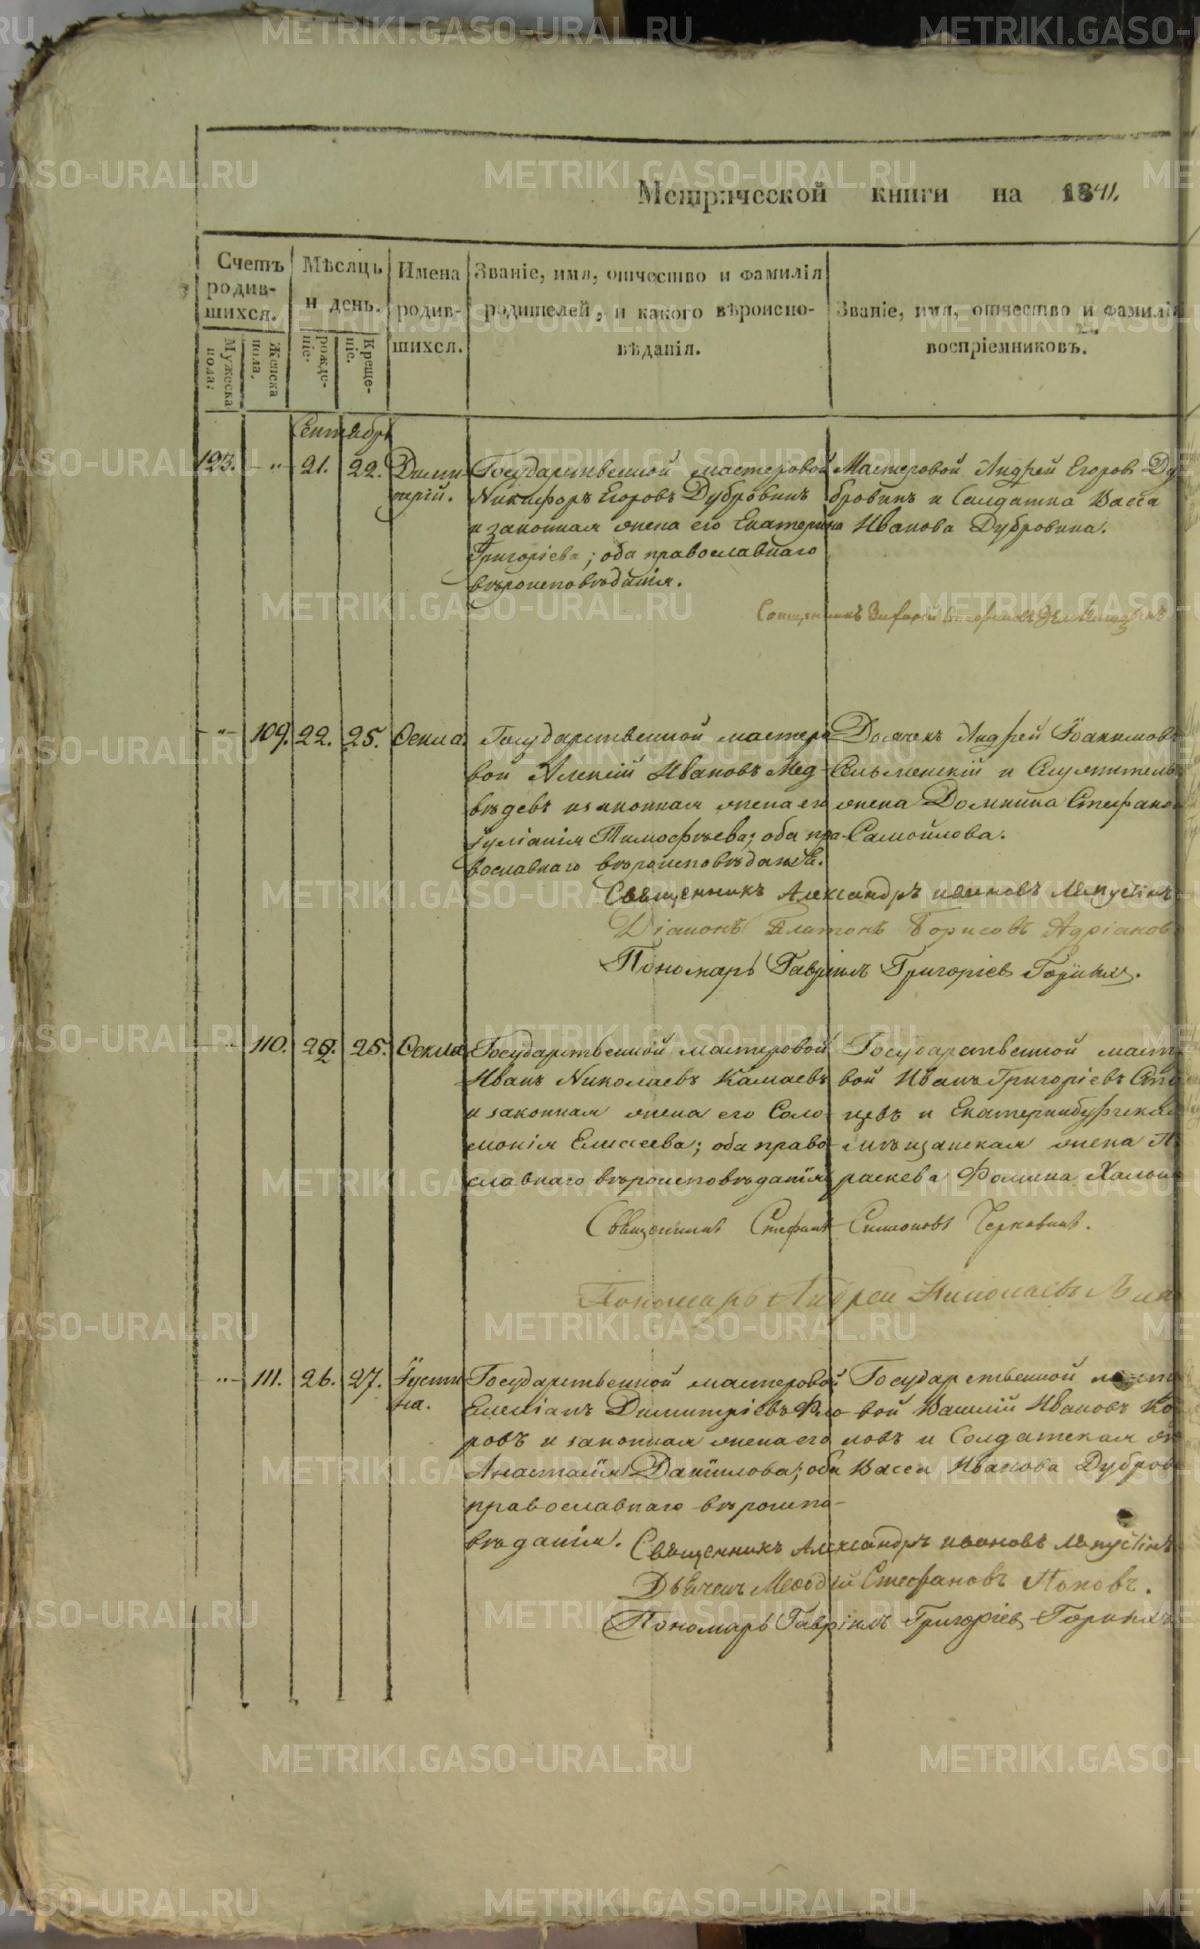 Метрической книги на 1841.
Счетъ родив-шихся.
Мужеска пола.
Женска пола.
Мѣсяцъ и день.
рожде-ніе.
Креще-ніе.
Имена родив-шихся.
Званіе, имя, отчество и фамилія родителей, и какого вѣроиспо-вѣданія.
Званіе, имя, отчество и фамилія воспріемниковъ.
Сентябрь
123. -„- 21. 22. Дими-трій.
Государственной мастеровой
Никифоръ Егоровъ Дубровинъ
и законная жена его Екатерина
Григоріева; оба православнаго
вѣроисповѣданія.
Мастеровой Андрей Егоровъ Ду
бровинъ и Салдатка Васса
Иванова Дубровина.
Священникъ
-„- 109. 22. 25. Ѳекла.
Государственной мастеро
вой Алексій Ивановъ Мед-
вѣдевъ и законная жена его
Іуліанія Тимоѳѣева; оба пра-
вославнаго вѣроисповѣданія.
Андрей Іоакимовъ
и Служитель
жена Домнина Стефано
Самойлова.
Священникъ Александръ Иоанновъ Лепустинъ
Діаконъ Платонъ Борисовъ Адріанов
Пономарь Гавріилъ Григоріев Горныхъ.
-„- 110. 22. 25. Ѳекла
Государственной мастеровой
Иванъ Николаевъ Камаевъ
и законная жена его Соло-
монія Елисеева; оба право-
славнаго вѣроисповѣданія
Государственной масте
вой Иванъ Григоріевъ
цевъ и Екатеринбургская
мѣщанская жена П
раскева Фомина
Священникъ Стефанъ Симеоновъ Черковинъ.
Пономарь Андрей Николаевъ
-„- 111. 26. 27. Іусти-на.
Государственной мастеровой
Емеліанъ Димитріевъ Фло-
ровъ и законная жена его
Анастасія Данилова; оба
православнаго вѣроиспо-
вѣданія.
Государственной
вой Василій Ивановъ Ко
ловъ и Солдатская
Васса Иванова Дубров
Священникъ Александръ Иоанновъ Лепустинъ
Дьячекъ Меѳодій Стефановъ Поповъ.
Пономарь Гавріилъ Григоріев Горныхъ
METRIKI.GASO-URAL.RU